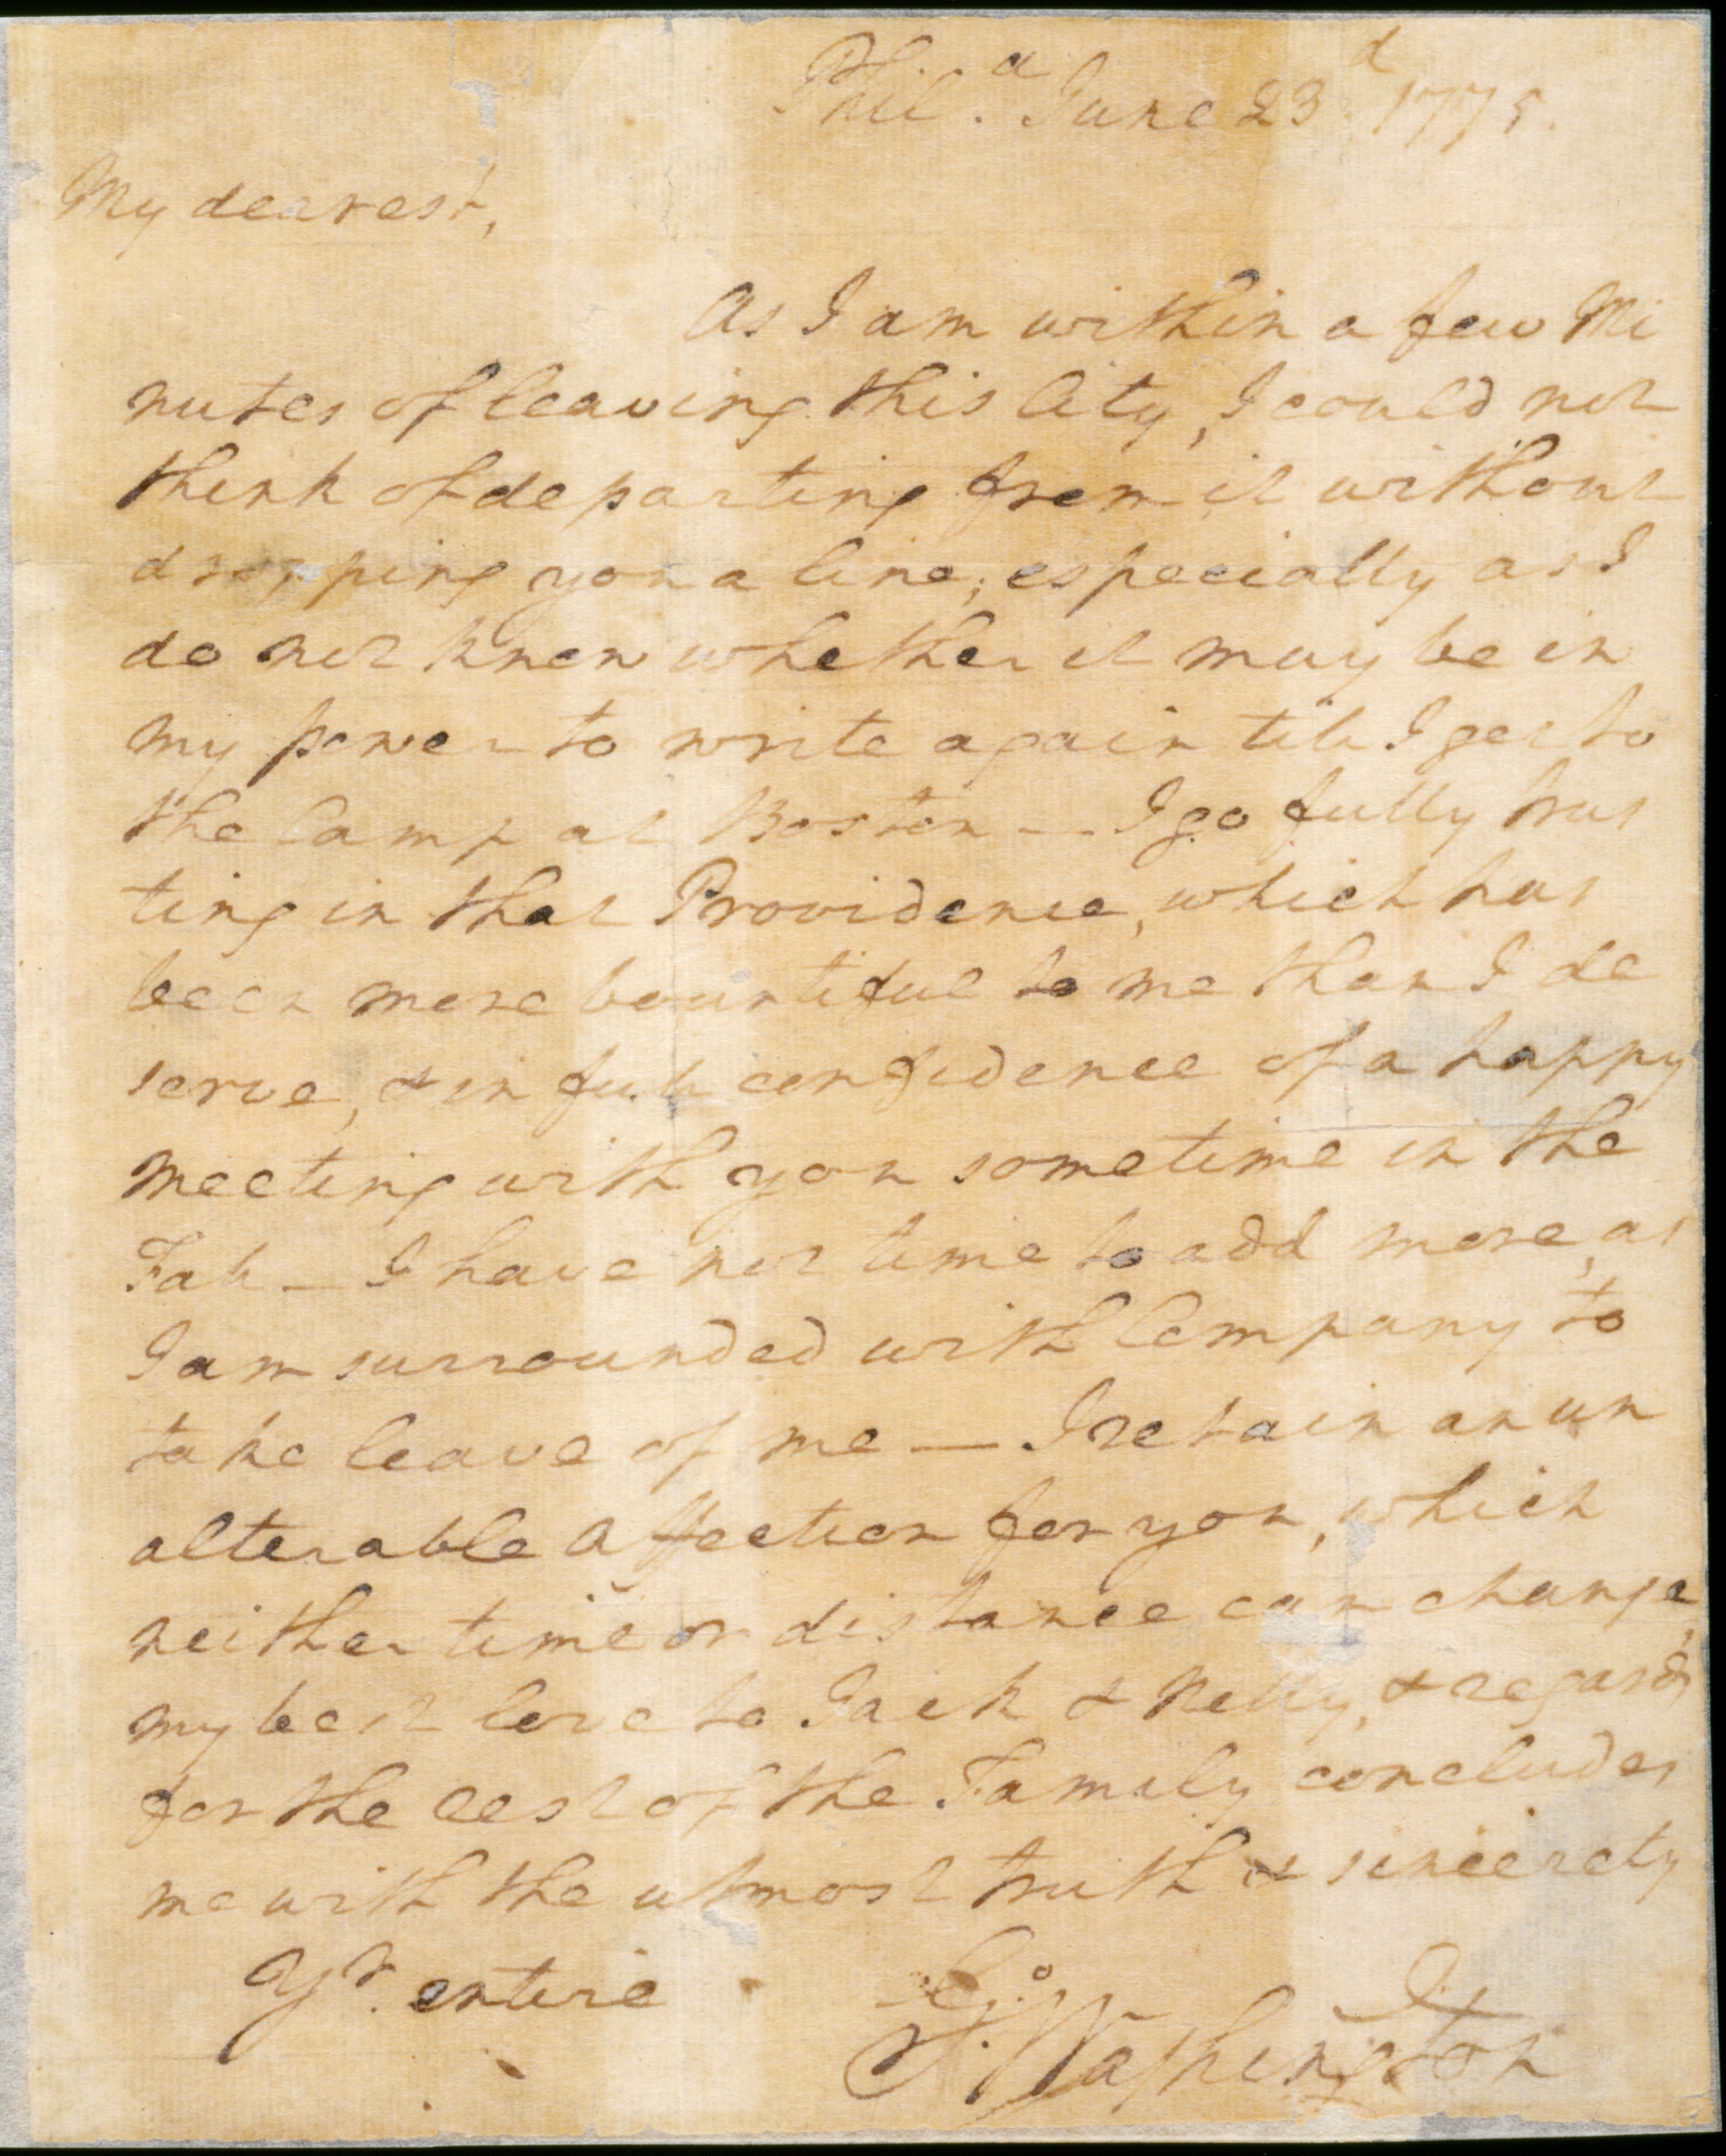 Phil.a June 23d 1775.
My dearest,
As I am within a few Mi
nutes of leaving this City, I could not
think of departing from it without
dropping you a line; especially as I
do not know whether it may be in
my power to write again till I get to
the Camp at Boston — I go fully trus
ting in that Providence, which has
been more bountiful to me than I de
serve, & in full confidence of a happy
meeting with you sometime in the
Fall — I have not time to add more, as
I am surrounded with Company to
take leave of me — I retain an un
alterable affection for you, which
neither time or distance can change,
my best love to Jack & Nelly, & regards
for the rest of the Family concludes
me with the utmost truth & sincerety
Yr. entire
Go: Washington